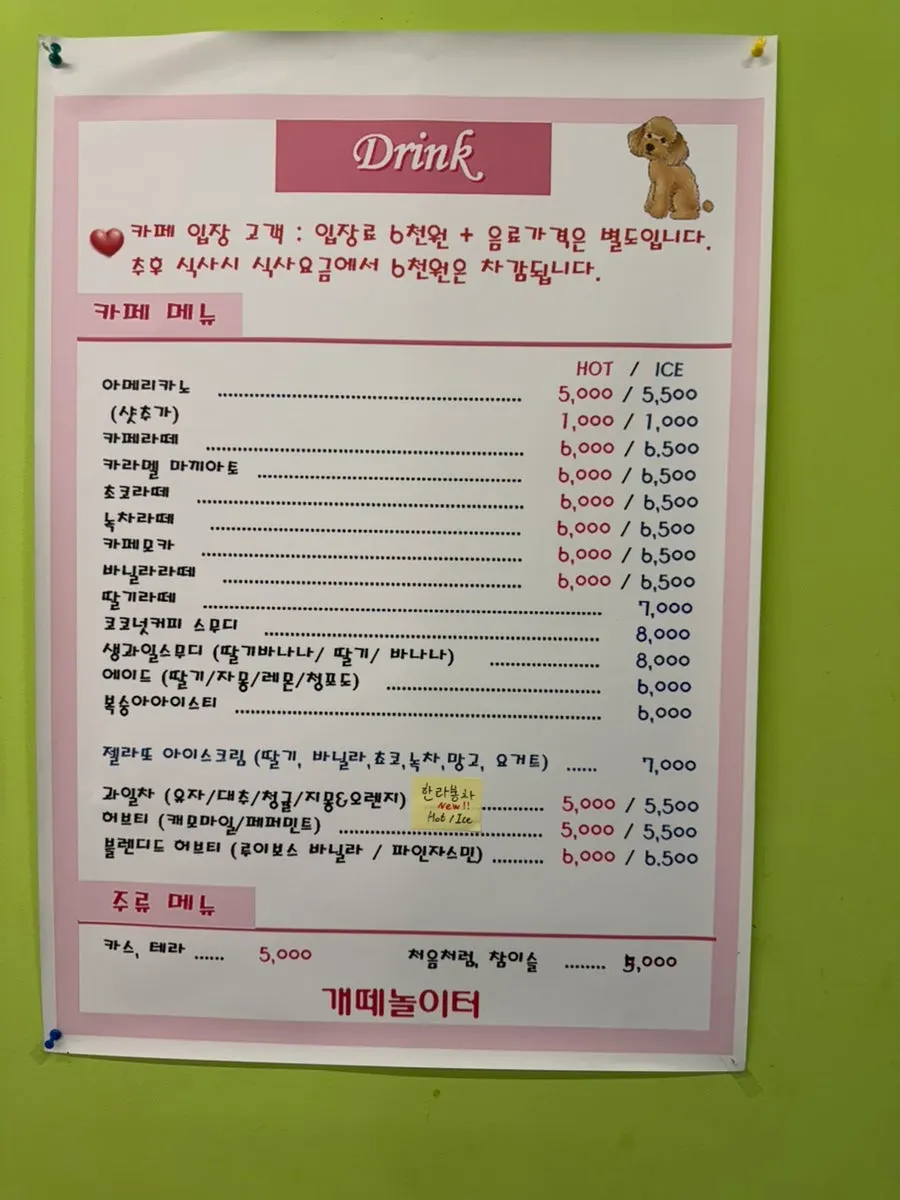 Drink
카페 입장 고객 : 입장료 6천원 + 음료가격은 별도입니다.
추후 식사시 식사요금에서 6천원은 차감됩니다.
카페 메뉴
HOT / ICE
아메리카노 ........ 5,000 / 5,500
(샷추가) 1,000 / 1,000
카페라떼 ........ 6,000 / 6.500
카라멜 마끼아토 ........ 6,000 / 6,500
초코라떼 ........ 6,000 / 6,500
녹차라떼 ........ 6,000 / 6,500
카페모카 ........ 6,000 / 6,500
바닐라라떼 ........ 6,000 / 6,500
딸기라떼 ........ 7,000
코코넛커피 스무디 ........ 8,000
생과일스무디 (딸기바나나/ 딸기/ 바나나) ........ 8,000
에이드 (딸기/자몽/레몬/청포도) ........ 6,000
복숭아아이스티 ........ 6,000
젤라또 아이스크림 (딸기, 바닐라,쵸코,녹차,망고, 요거트) ...... 7,000
과일차 (유자/대추/청귤/자몽&오렌지) ........ 5,000 / 5,500
한라봉차
New!!
Hot / Ice
허브티 (캐모마일/페퍼민트) ........ 5,000 / 5,500
블렌디드 허브티 (루이보스 바닐라 / 파인자스민) .......... 6,000 / 6.500
주류 메뉴
카스, 테라 ...... 5,000 처음처럼, 참이슬 ........ 5,000
개떼놀이터